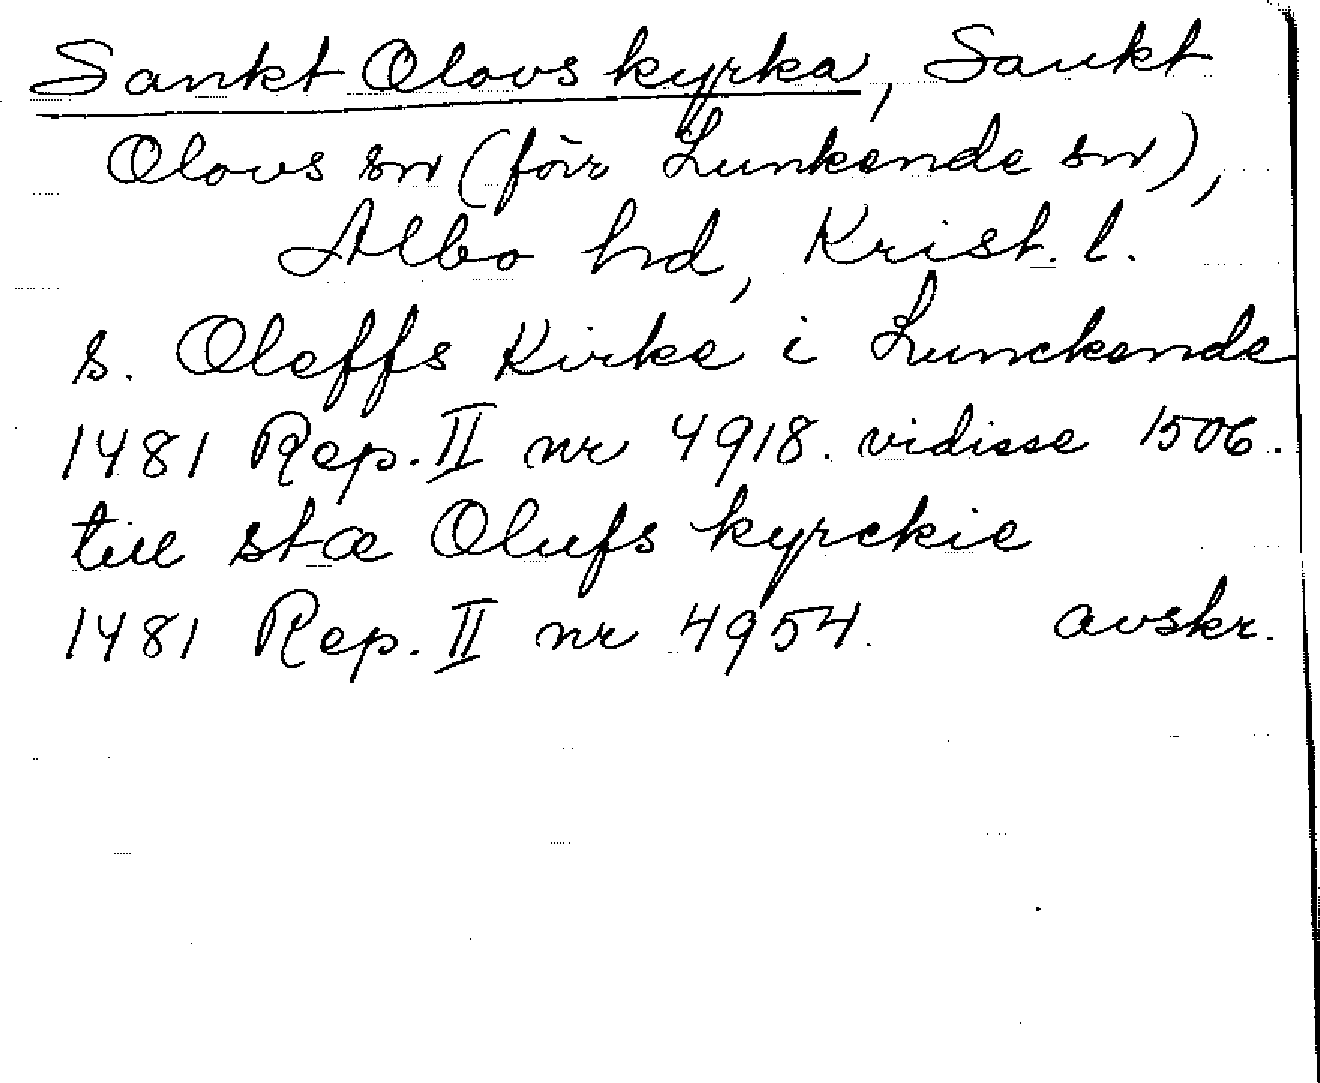 Sankt Olovs kyrka, Sankt
Olovs sn (förr Lunkende sn),
Albo hd, Krist. l.
s. Oleffs Kirke i Lunckende
1481 Rep. II nr 4918. vidisse 1506.
till stæ Olufs kyrckie
1481 Rep. II nr 4954. avskr.